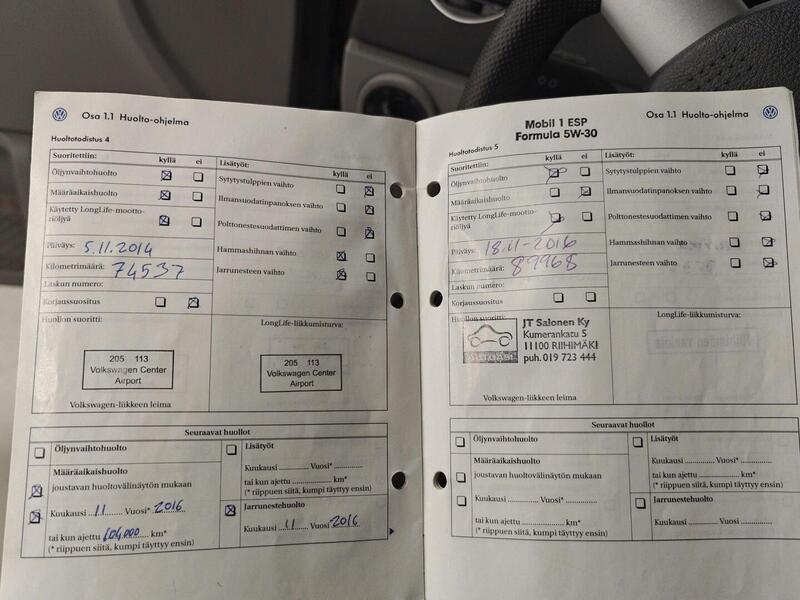 Osa 1.1 Huolto-ohjelma
Huoltotodistus 4
Suoritettiin: kyllä ei
Öljynvaihtohuolto
Määräaikaishuolto
Käytetty LongLife-mootto-
riöljyä
Päiväys: 5.11.2014
Kilometrimäärä: 74537
Laskun numero:
Korjaussuositus
Lisätyöt: kyllä ei
Sytytystulppien vaihto
Ilmansuodatinpanoksen vaihto
Polttonestesuodattimen vaihto
Hammashihnan vaihto
Jarrunesteen vaihto
Huollon suoritti:
205 113
Volkswagen Center
Airport
Volkswagen-liikkeen leima
LongLife-liikkumisturva:
205 113
Volkswagen Center
Airport
Seuraavat huollot
Öljynvaihtohuolto
Määräaikaishuolto
joustavan huoltovälinäytön mukaan
Kuukausi 11 Vuosi* 2016
tai kun ajettu 104.000 km*
(* riippuen siitä, kumpi täyttyy ensin)
Lisätyöt
Kuukausi Vuosi*
tai kun ajettu km*
(* riippuen siitä, kumpi täyttyy ensin)
Jarrunestehuolto
Kuukausi 11 Vuosi 2016
Mobil 1 ESP
Formula 5W-30
Osa 1.1 Huolto-ohjelma
Huoltotodistus 5
Suoritettiin: kyllä ei
Öljynvaihtohuolto
Määräaikaishuolto
Käytetty LongLife-mootto-
riöljyä
Päiväys: 18.11-2016
Kilometrimäärä: 89968
Laskun numero:
Korjaussuositus
Lisätyöt: kyllä ei
Sytytystulppien vaihto
Ilmansuodatinpanoksen vaihto
Polttonestesuodattimen vaihto
Hammashihnan vaihto
Jarrunesteen vaihto
Huollon suoritti:
JT Salonen Ky
Kumerankatu 5
11100 RIIHIMÄKI
puh. 019 723 444
Volkswagen-liikkeen leima
LongLife-liikkumisturva:
Seuraavat huollot
Öljynvaihtohuolto
Määräaikaishuolto
joustavan huoltovälinäytön mukaan
Kuukausi Vuosi*
tai kun ajettu km*
(* riippuen siitä, kumpi täyttyy ensin)
Lisätyöt
Kuukausi Vuosi*
tai kun ajettu km*
(* riippuen siitä, kumpi täyttyy ensin)
Jarrunestehuolto
Kuukausi Vuosi